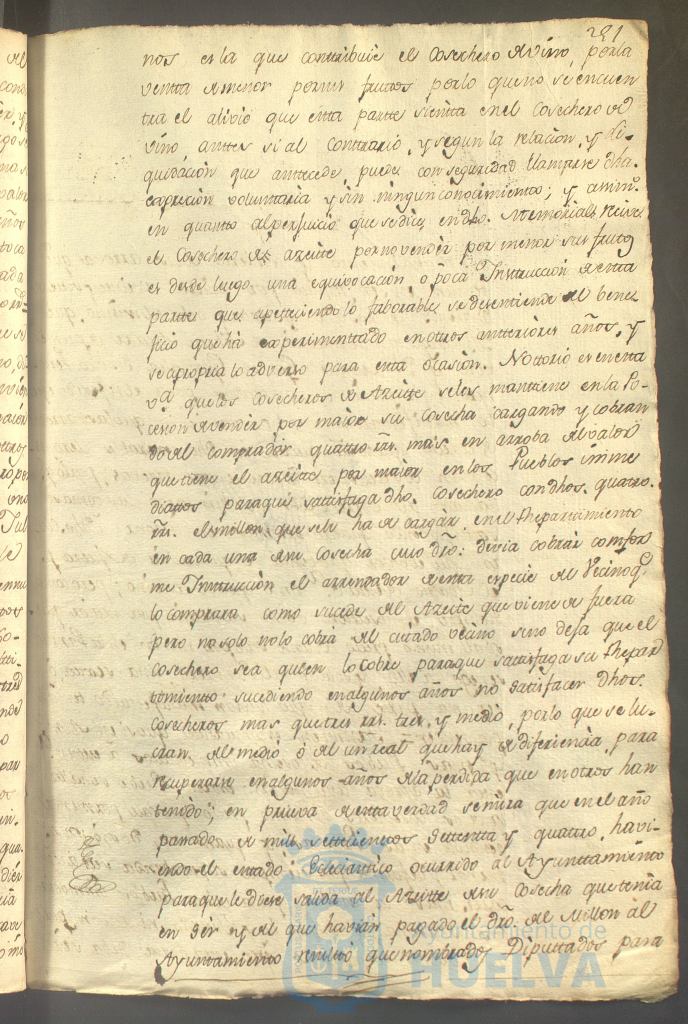 281
nos es la que contribuie el Cosechero de vino, por la
venta de menor por sus fruttos por lo que no se encuen
tra el alivio que esta partte sientta en el Cosechero de
vino, anttes si al Conttrario, y segun la relacion, y li-
quidacion que anttecede puede con seguridad llamarse dha.
expresion voluntaria y sin ningun conocimiento; y assim.
en quantto al perjuicio que se dice en dho. Memorial, recive
el Cosechero de Azeitte por no vender por menor sus frutos
es desde luego una equivocacion o poca Instruccion de esta
partte que apeteciendo lo faborable, se desentiende del bene
ficio que há experimenttado en ottros antteriores años, y
se apropia lo adverso para esta ocasion. Nottorio es en esta
va. que los Cosecheros de Azeitte se les manttiene en la Po-
cesion de vender por maior su cosecha cargando y cobran
do del comprador quattro rrs. mas en arroba del valor
que tiene el azeitte por maior en los Pueblos inme
diattos para que sattisfaga dho. Cosechero con dhos. quatro
rrs. el millon que se le ha de cargar en el Repartimiento
en cada una de su Cosecha cuio dro. devia cobrar confor
me Instruccion el arrendador de esta especie del Vecino q.
lo comprara como sucede del Azeitte que viene de fuera
pero no solo no lo cobra del cittado vecino sino deja que el
Cosechero sea quien lo cobre para que sattisfaga su Repar
timiento sucediendo en algunos años no sattisfacer dhos.
Cosecheros mas que tres rrs. tres, y medio, por lo que se lu-
cran del medio ó del un real que hay de diferiencia, para
recuperarse en algunos años de la perdida que en otros han
tenido; en prueva de esta verdad se mira que en el año
passado de mill settecientos settentta y quattro, havi-
endo el estado Eclesiasttico ocurrido al Ayunttamiento
para que le diese salida al Azeitte de su Cosecha que tenia
en ser y del que havian pagado el dro. del Millon al
Ayuntamiento resultó que nombrados Diputtados para
Ayuntamiento de
HUELVA